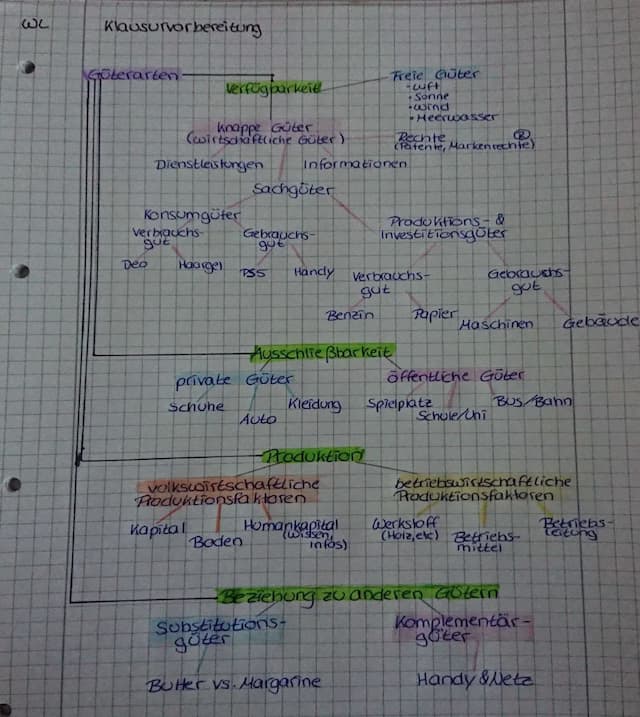 WL
Klausurvorbereitung
Güterarten
Verfügbarkeit
Freie Güter
• Luft
• Sonne
• Wind
• Meerwasser
Knappe Güter
(wirtschaftliche Güter)
Rechte
(Patente, Markenrechte) ®
Dienstleistungen
Informationen
Sachgüter
Konsumgüter
Produktions- &
Investitionsgüter
Verbrauchs-
gut
Gebrauchs-
gut
Deo
Haargel
PS5
Handy
Verbrauchs-
gut
Gebrauchs-
gut
Benzin
Papier
Maschinen
Gebäude
Ausschließbarkeit
private Güter
öffentliche Güter
Schuhe
Auto
Kleidung
Spielplatz
Schule/Uni
Bus/Bahn
Produktion
volkswirtschaftliche
Produktionsfaktoren
betriebswirtschaftliche
Produktionsfaktoren
Kapital
Boden
Humankapital
(Wissen,
Infos)
Werkstoff
(Holz, etc)
Betriebs-
mittel
Betriebs-
leitung
Beziehung zu anderen Gütern
Substitutions-
güter
Komplementär-
güter
Butter vs. Margarine
Handy & Netz